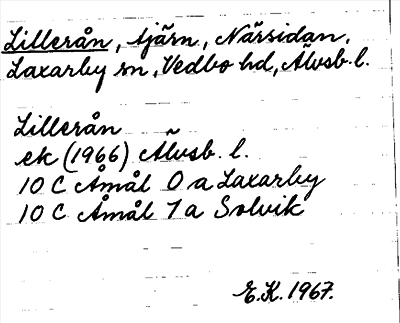 Lillerån, tjärn, Närsidan,
Laxarby sn, Vedbo hd, Älvsb. l.
Lillerån
ek (1966) Älvsb. l.
10 C Åmål 0 a Laxarby
10 C Åmål 1 a Solvik
E.K. 1967.